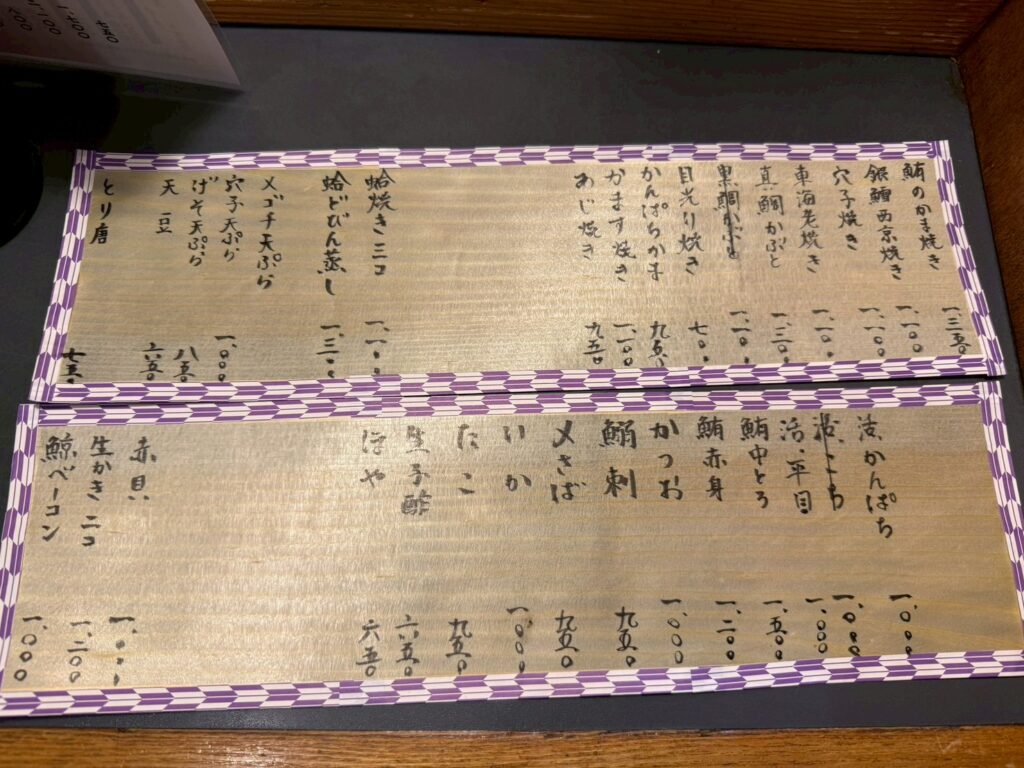 鮪のかま焼き 一.三五〇
銀鱈西京焼き 一.一〇〇
穴子焼き 一.一〇〇
車海老焼き 一.一〇〇
真鯛かぶと 一.三〇〇
黒鯛かぶと 一.一〇〇
目光り焼き 七〇〇
かんぱちかま 九五〇
かます焼き 一.一〇〇
あじ焼き 九五〇
蛤焼き 二コ 一.一〇〇
蛤どびん蒸し 一.三〇〇
メゴチ天ぷら
穴子天ぷら 一.〇〇〇
げそ天ぷら 八五〇
天豆 六五〇
とり唐 七五〇
活かんぱち 一.〇〇〇
こち 一.〇〇〇
活.平目 一.〇〇〇
鮪中とろ 一.五〇〇
鮪赤身 一.二〇〇
かつお 一.〇〇〇
鰯刺 九五〇
〆さば 九五〇
いか 一.〇〇〇
たこ 九五〇
生子酢 六五〇
ほや 六五〇
赤貝 一.〇〇〇
生かき 二コ 一.二〇〇
鯨ベーコン 一.〇〇〇